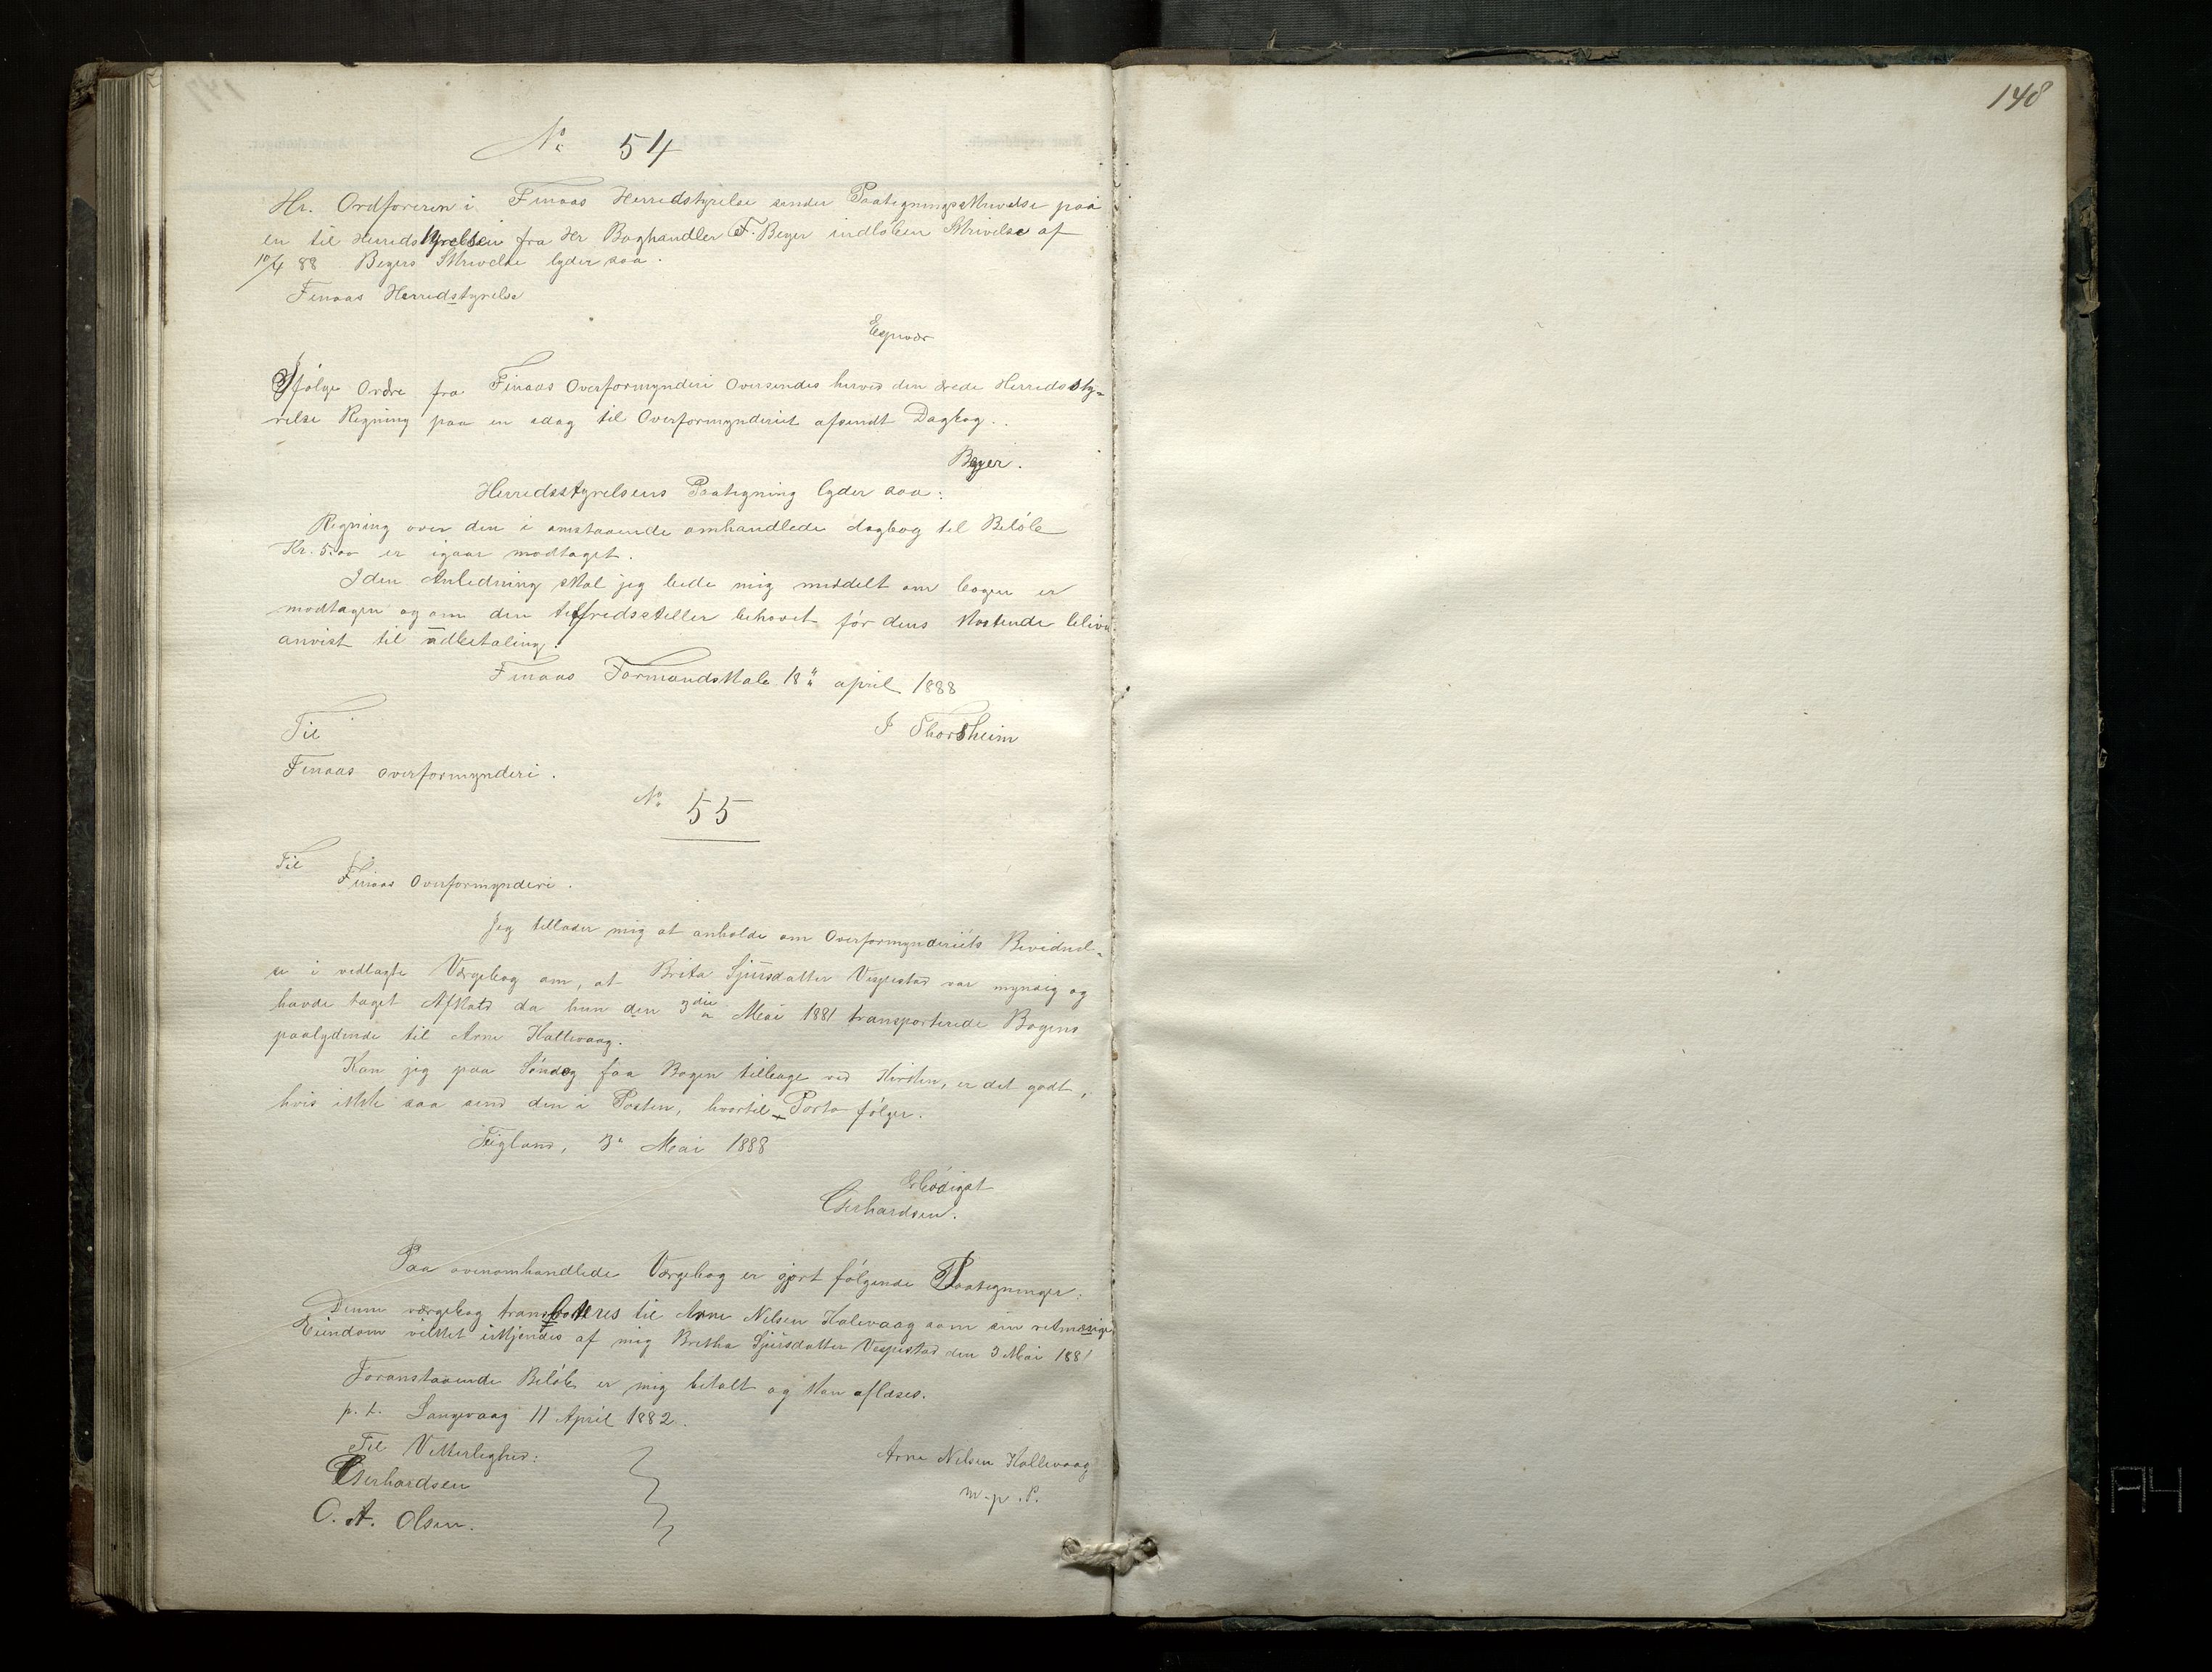 148
No 54
Hr. Ordføreren i Finaas Herredstyrelse sender Paategningsskrivelse paa
en til Herredstyrelsen fra Hr Boghandler F. Beyer indløben Skrivelse af
10/4 88. Beyers Skrivelse lyder saa.
Finaas Herredstyrelse
Espevær
Ifølge Ordre fra Finaas Overformynderi Oversendes herved den ærede Herredssty-
relse Regning paa en idag til Overformynderiet afsendt Dagbog.
Beyer.
Herredsstyrelsens Paategning lyder saa:
Regning over den i omstaaende omhandlede dagbog til Beløb
Kr. 5.00 er igaar modtaget.
I den Anledning skal jeg bede mig meddelt om bogen er
modtagen og om den tilfredsstiller behovet før dens Kostende blive
anvist til udbetaling.
Finaas Formandskab 18 april 1888
J Thorsheim
Til
Finaas overformynderi.
No 55
Til
Finaas Overformynderi.
Jeg tillader mig at anholde om Overformynderiets Bevidnel-
se i vedlagte Værgebog om, at Brita Sjursdatter Vespestad var myndig og
havde taget Afkald da hun den 3die Mai 1881 transporterede Bogens
paalydende til Arne Hallevaag.
Kan jeg paa Søndag faa Bogen tilbage ved Kirken, er det godt,
hvis ikke saa send den i Posten, hvortil Porto følger.
Teigland, 3 Mai 1888
Erbødigst
Gerhardsen.
Paa ovenomhandlede Værgebog er gjort følgende Paategninger:
Denne værgebog transporteres til Arne Nilsen Halevaag som sin retmæsige
Eiendom vilket erkjendes af mig Bretha Sjursdatter Vespestad den 3 Mai 1881
Foranstaaende Beløb er mig betalt og kan aflæses.
p. t. Langevaag 11 April 1882.
Til Vitterlighed:
Gerhardsen
O. A. Olsen.
Arne Nilsen Hallevaag
m. p. P.
A4